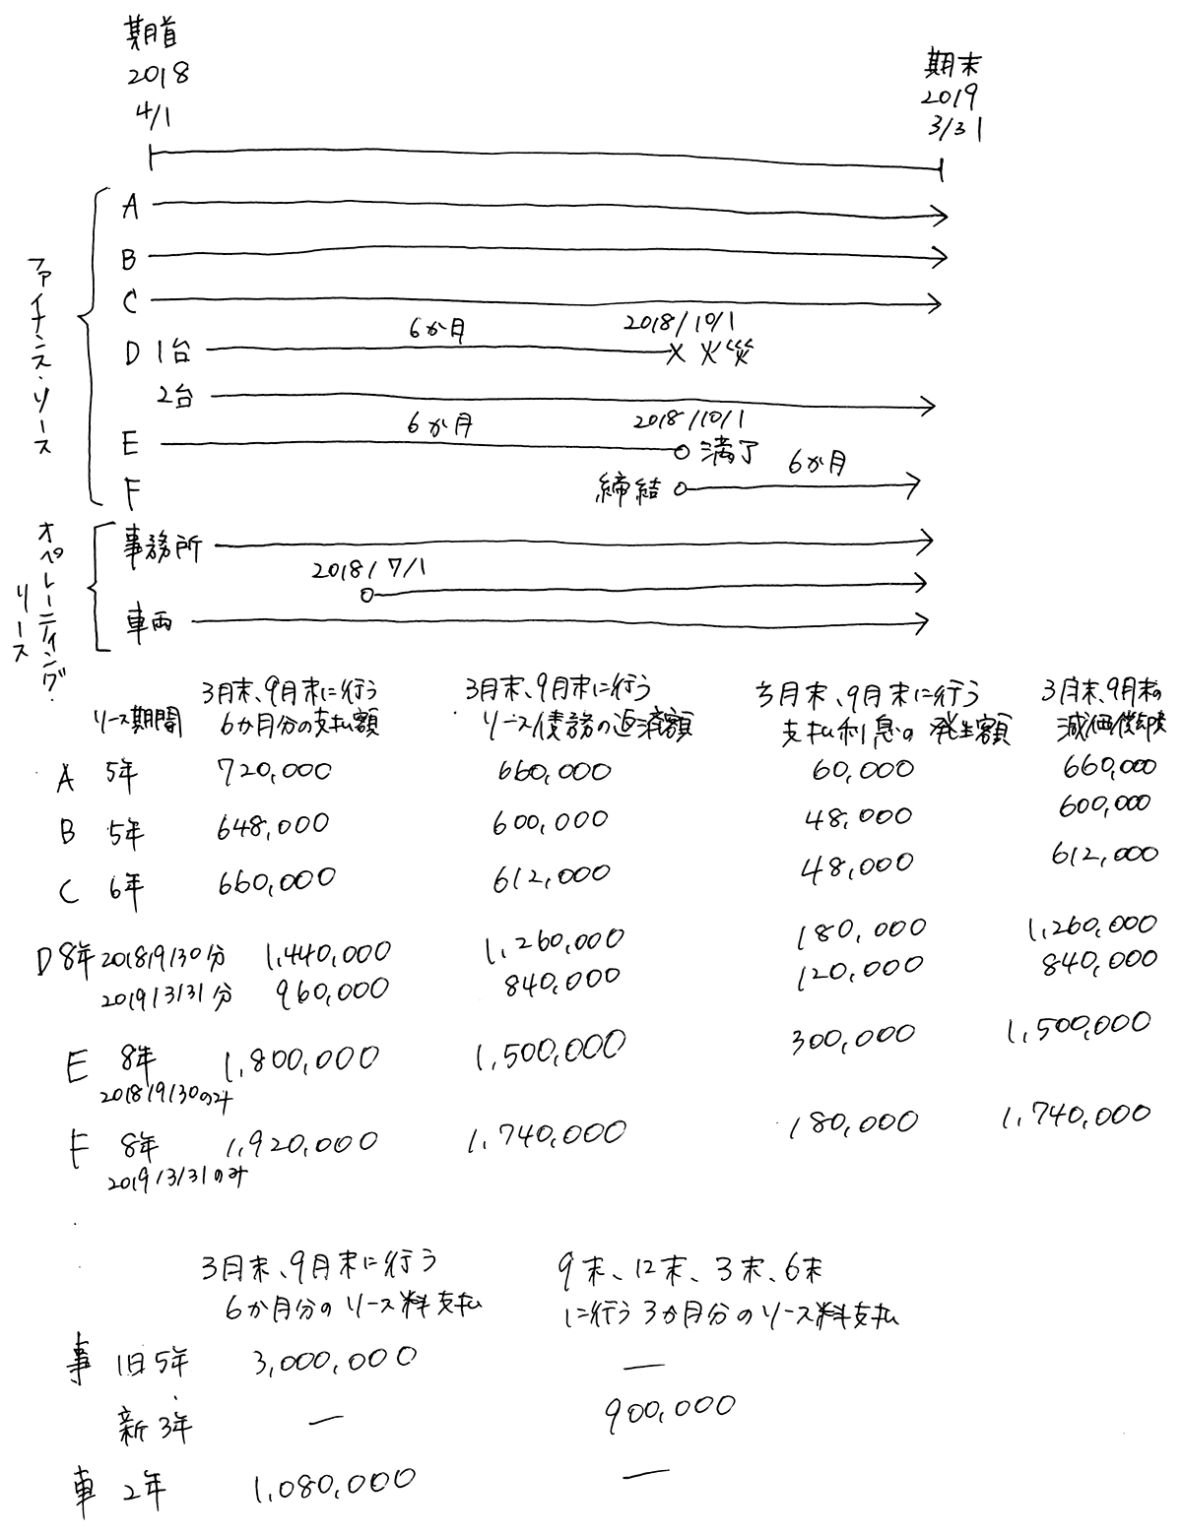 期首
2018
4/1
期末
2019
3/31
ファイナンス・リース
A
B
C
D 1台 6か月 2018/10/1 火災
2台
E 6か月 2018/10/1 満了
F 締結 6か月
オペレーティング・
リース
事務所
2018/7/1
車両
リース期間
3月末、9月末に行う
6か月分の支払額
3月末、9月末に行う
リース債務の返済額
3月末、9月末に行う
支払利息の発生額
3月末、9月末の
減価償却費
A 5年 720,000 660,000 60,000 660,000
B 5年 648,000 600,000 48,000 600,000
C 6年 660,000 612,000 48,000 612,000
D 8年 2018/9/30分 1,440,000 1,260,000 180,000 1,260,000
2019/3/31分 960,000 840,000 120,000 840,000
E 8年 1,800,000 1,500,000 300,000 1,500,000
2018/9/30のみ
F 8年 1,920,000 1,740,000 180,000 1,740,000
2019/3/31のみ
3月末、9月末に行う
6か月分のリース料支払
9末、12末、3末、6末
に行う3か月分のリース料支払
事 旧5年 3,000,000 —
新3年 — 900,000
車 2年 1,080,000 —